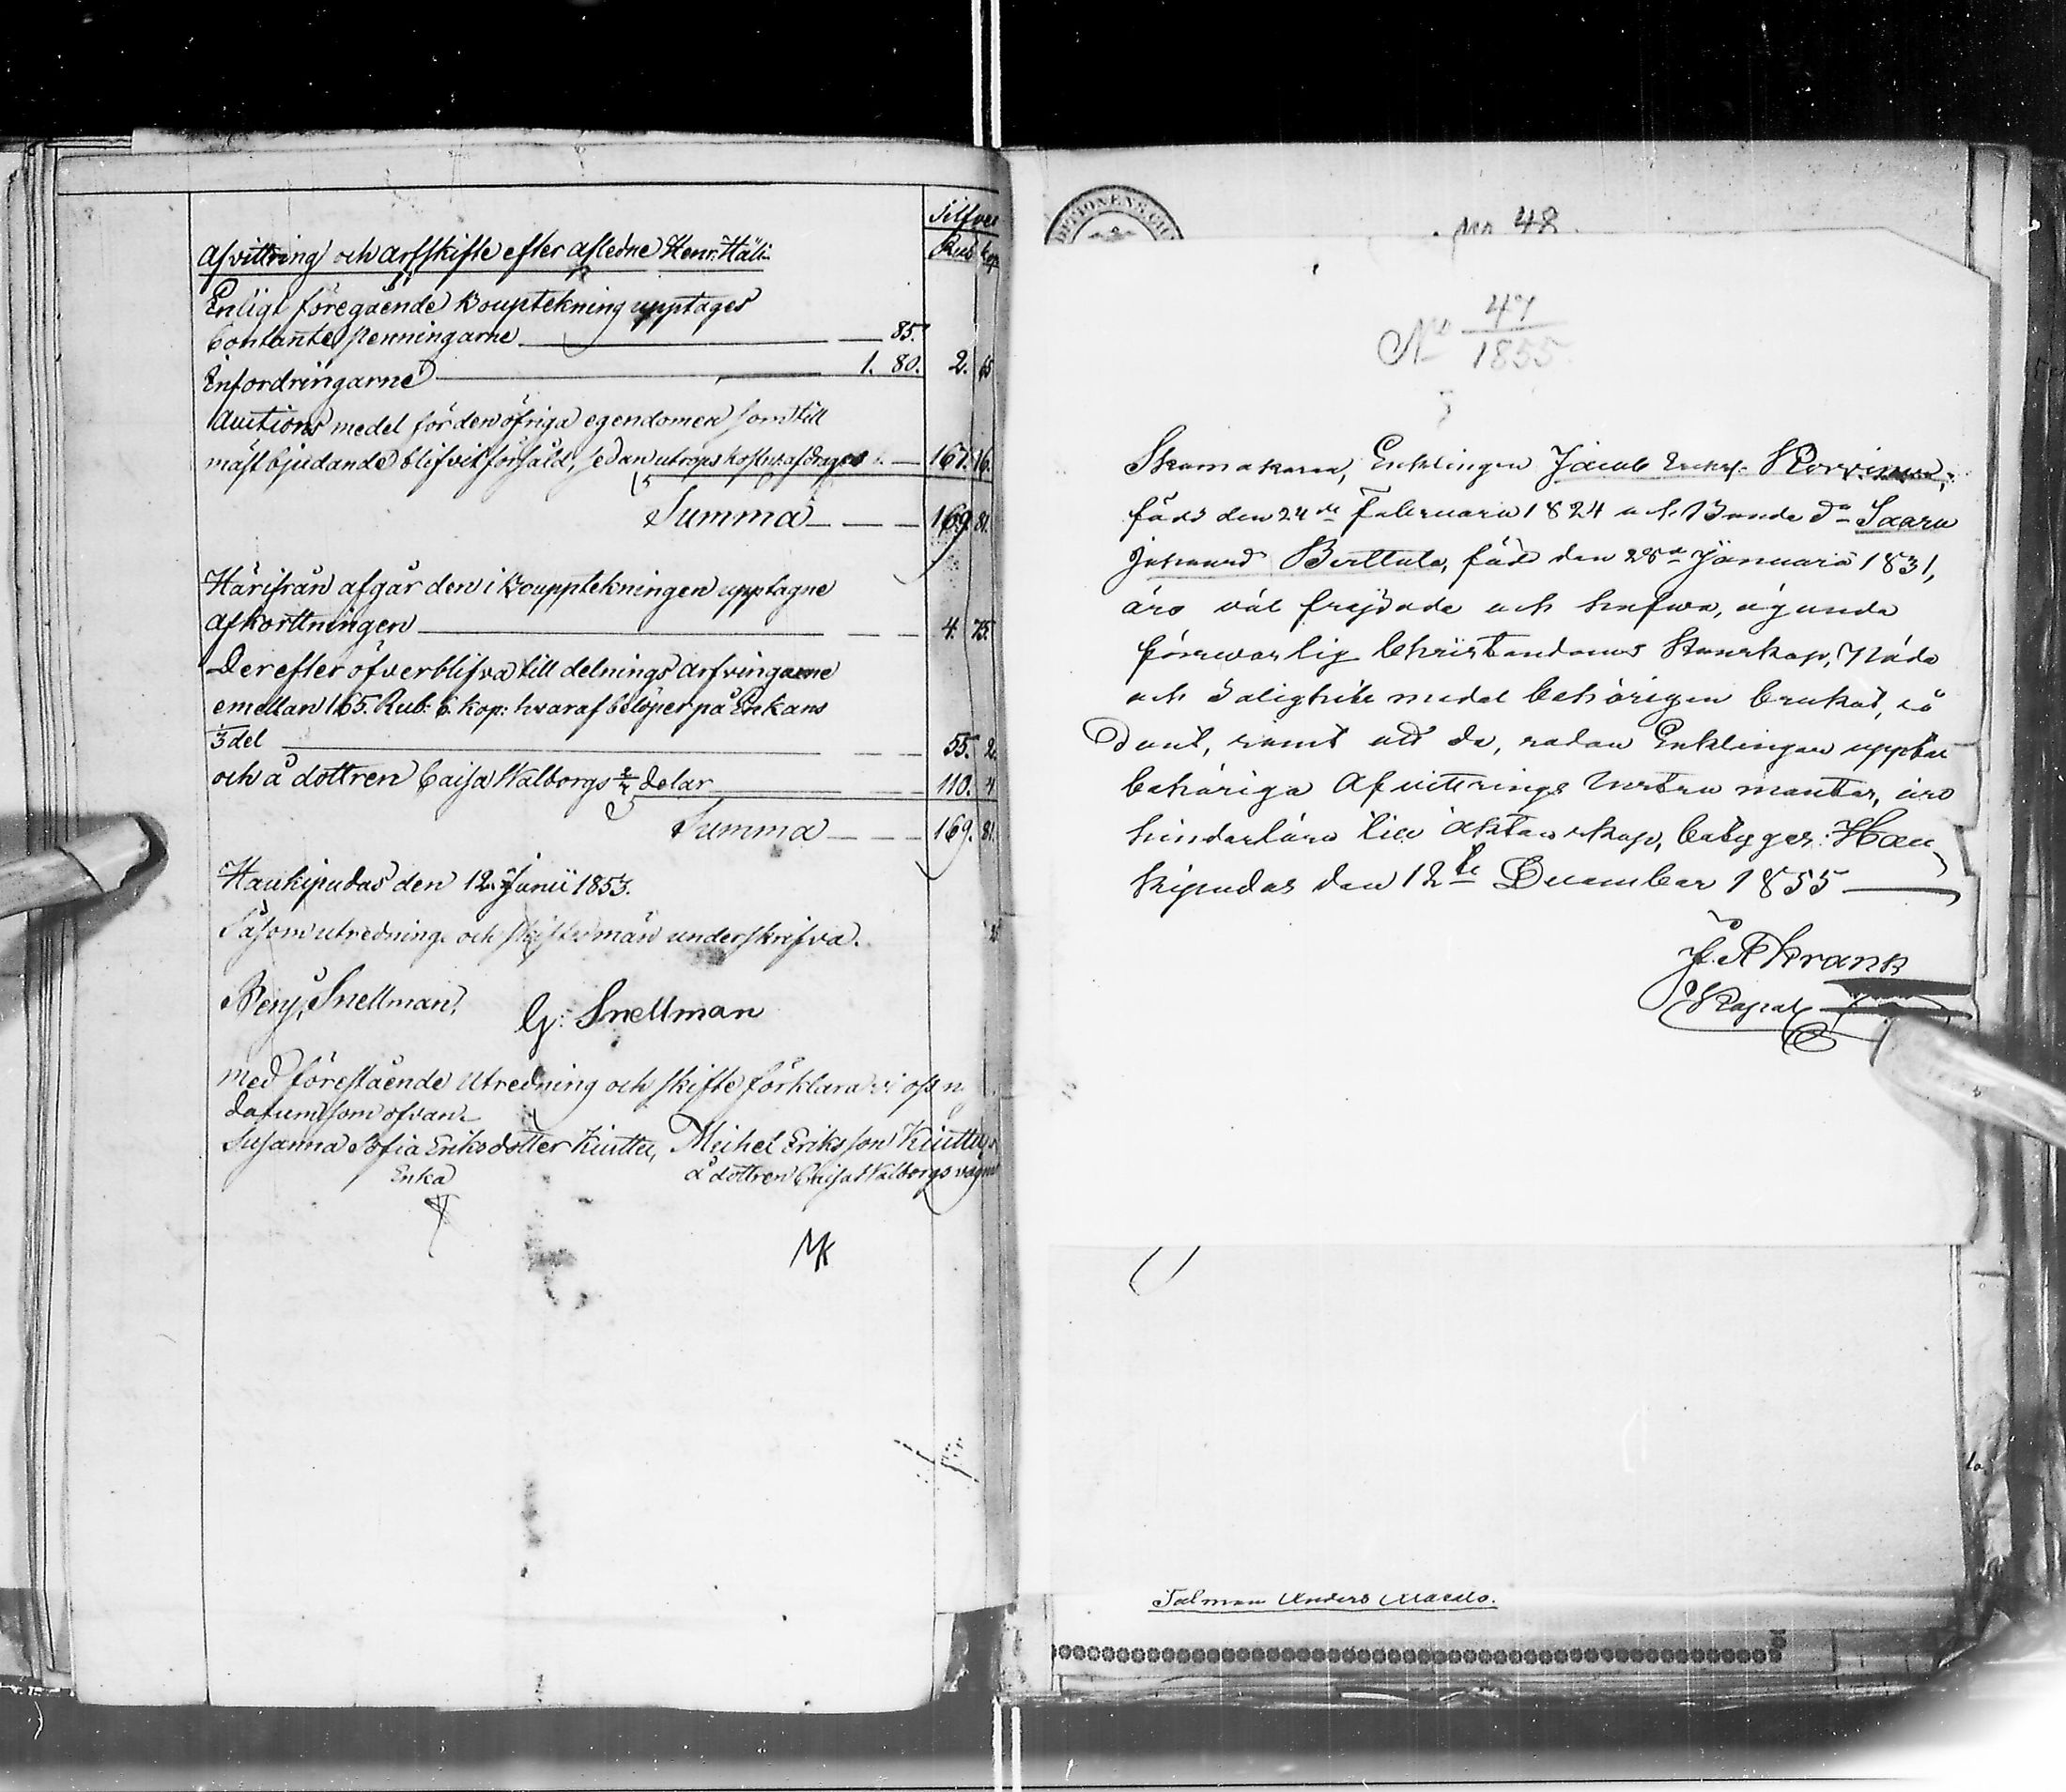 Silfver
Rub kop
Afvittring och arfskifte efter afledne Henr. Häli
Enligt föregående Bouptekning upptages
Contante penningarne 85.
Infordringarne 1. 80. 2. 65
Auctions medel för den öfriga egendomen som till
mäst bjudande blifvit försåld, sedan utrops kostn: afdrages 167. 16.
Summa 169. 81.
Härifrån afgår den i Boupptekningen upptagne
afkorttningen 4. 75.
Derefter öfverblifva till delnings arfvingarne
emellan 165. Rub: 6. kop: hvaraf belöper på Enkans
1/3 del 55. 2.
och å dottren Caisa Walborgs 2/3 delar 110. 4
Summa 169. 81.
Haukipudas den 12. Junii 1853.
Såsom utrednings och skiftesmän underskrifva.
Benj. Snellman. G: Snellman
Med förestående Utredning och skifte förklara vi oss n
datum som ofvan.
Susanna Sofia Eriksdotter Kiuttu, Michel Eriksson Kiuttu
Enka å dottren Caisa Walborgs vägna
MK
No 48.
No 47/1855
Skomakaren, Enklingen Jacob
född den 24de Februarii 1824 och Bonde do Saara
Johansd Berttula, född den 28de Januarii 1831,
äro väl frejdade och hafva, ägande
försvarlig Christendoms kunskap, Nåde
och Salighets medel behörigen brukat, så
dant, samt att de, sedan Enklingen uppter
behöriga Afvittrings Instrumenter, äro
hinderlöse till äktenskap, betygar: Hau
kipudas den 12te December 1855
J. A Krank
Kapal
Talman Anders